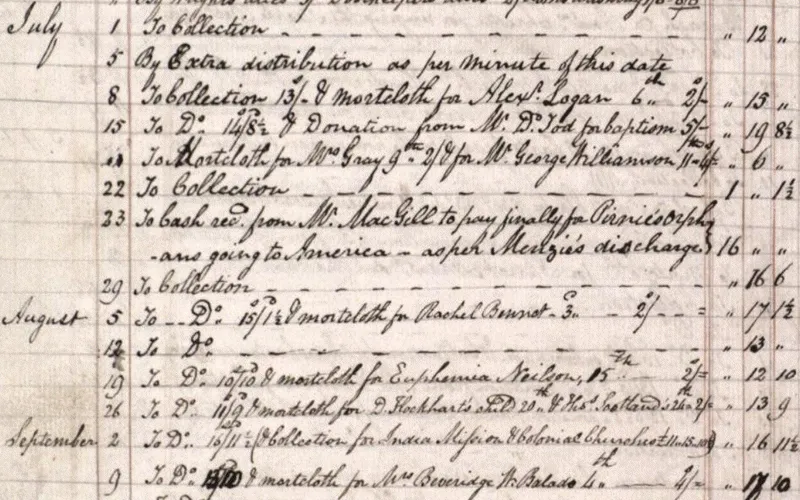 July 1 To Collection „ 12 „
5 By Extra distribution as per minute of this date
8 To Collection 13/- & mortcloth for Alexr. Logan 6th 2/- „ 15 „
15 To Do. 14/8½ & Donation from Mr. D. Tod for baptism 5/- „ 19 8½
„ To Mortcloth for Mrs Gray 9th 2/ & for Mr. George Williamson 11th 4/= „ 6 „
22 To Collection 1 „ 1½
23 To Cash recd. from Mr. MacGill to pay finally for Pirnie's orph
-ans going to America - as per Menzie's discharge 16 „ „
29 To Collection „ 16 6
August 5 To Do. 15/1½ & mortcloth for Rachel Bennot 3d 2/- „ 17 1½
12 To Do. „ 13 „
19 To Do. 10/10 & mortcloth for Euphemia Neilson, 15th 2/= „ 12 10
26 To Do. & mortcloth for D. Flockhart's child 20th & Scotland's 24th 2/= „ 13 9
September 2 To Do. 16/11½ (& Collection for India Mission & Colonial Churches £11-15-10) „ 16 11½
9 To Do. & mortcloth for Mrs Beveridge W. Balado 4th 2/= „ 17 10